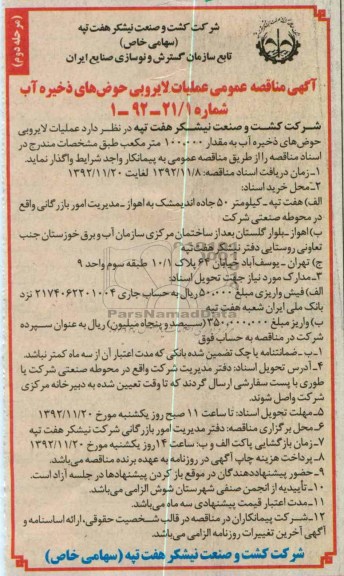 (مرحله دوم)
شرکت کشت و صنعت نیشکر هفت تپه
(سهامی خاص)
تابع سازمان گسترش و نوسازی صنایع ایران
آگهی مناقصه عمومی عملیات لایروبی حوض‌های ذخیره آب
شماره ۲۱/۱-۹۲-۱
شرکت کشت و صنعت نیشکر هفت تپه در نظر دارد عملیات لایروبی
حوض‌های ذخیره آب به مقدار ۱۰۰.۰۰۰ متر مکعب طبق مشخصات مندرج در
اسناد مناقصه را از طریق مناقصه عمومی به پیمانکار واجد شرایط واگذار نماید.
۱-زمان دریافت اسناد مناقصه: ۱۳۹۲/۱۱/۸ لغایت ۱۳۹۲/۱۱/۲۰
۲-محل خرید اسناد:
الف) هفت تپه - کیلومتر ۵۰ جاده اندیمشک به اهواز - مدیریت امور بازرگانی واقع
در محوطه صنعتی شرکت
ب) اهواز-بلوار گلستان بعد از ساختمان مرکزی سازمان آب و برق خوزستان جنب
تعاونی روستایی دفتر نیشکر هفت تپه
ج) تهران - یوسف‌آباد خیابان ۶۴ پلاک ۱۰/۱ طبقه سوم واحد ۹
۳-مدارک مورد نیاز جهت تحویل اسناد:
الف) فیش واریزی مبلغ ۵۰۰.۰۰۰ ریال به حساب جاری ۲۱۷۴۰۶۲۲۰۱۰۰۴ نزد
بانک ملی ایران شعبه هفت تپه
ب) واریز مبلغ ۳۵۰,۰۰۰,۰۰۰ (سیصد و پنجاه میلیون) ریال به عنوان سپرده
شرکت در مناقصه به حساب فوق
۱-ب- ضمانتنامه یا چک تضمین شده بانکی که مدت اعتبار آن از سه ماه کمتر نباشد.
۴-آدرس تحویل اسناد: دفتر مدیریت شرکت واقع در محوطه صنعتی شرکت یا
طوری با پست سفارشی ارسال گردند که تا وقت تعیین شده به دبیرخانه مرکزی
شرکت واصل شوند.
۵-مهلت تحویل اسناد: تا ساعت ۱۱ صبح روز یکشنبه مورخ ۱۳۹۲/۱۱/۲۰
۶-محل برگزاری مناقصه: دفتر مدیریت امور بازرگانی شرکت نیشکر هفت تپه
۷-زمان بازگشایی پاکت الف و ب: ساعت ۱۴ روز یکشنبه مورخ ۱۳۹۲/۱۱/۲۰
۸-پرداخت هزینه چاپ آگهی در روزنامه به عهده برنده مناقصه می‌باشد.
۹-حضور پیشنهاددهندگان در موقع باز کردن پیشنهادها در جلسه آزاد است.
۱۰-تأییدیه از انجمن صنفی شهرستان شوش الزامی می‌باشد.
۱۱-مدت اعتبار قیمت پیشنهادی سه ماه می‌باشد.
۱۲-شرکت پیمانکاران در مناقصه در قالب شخصیت حقوقی، ارائه اساسنامه و
آگهی آخرین تغییرات روزنامه الزام می‌باشد.
شرکت کشت و صنعت نیشکر هفت تپه (سهامی خاص)